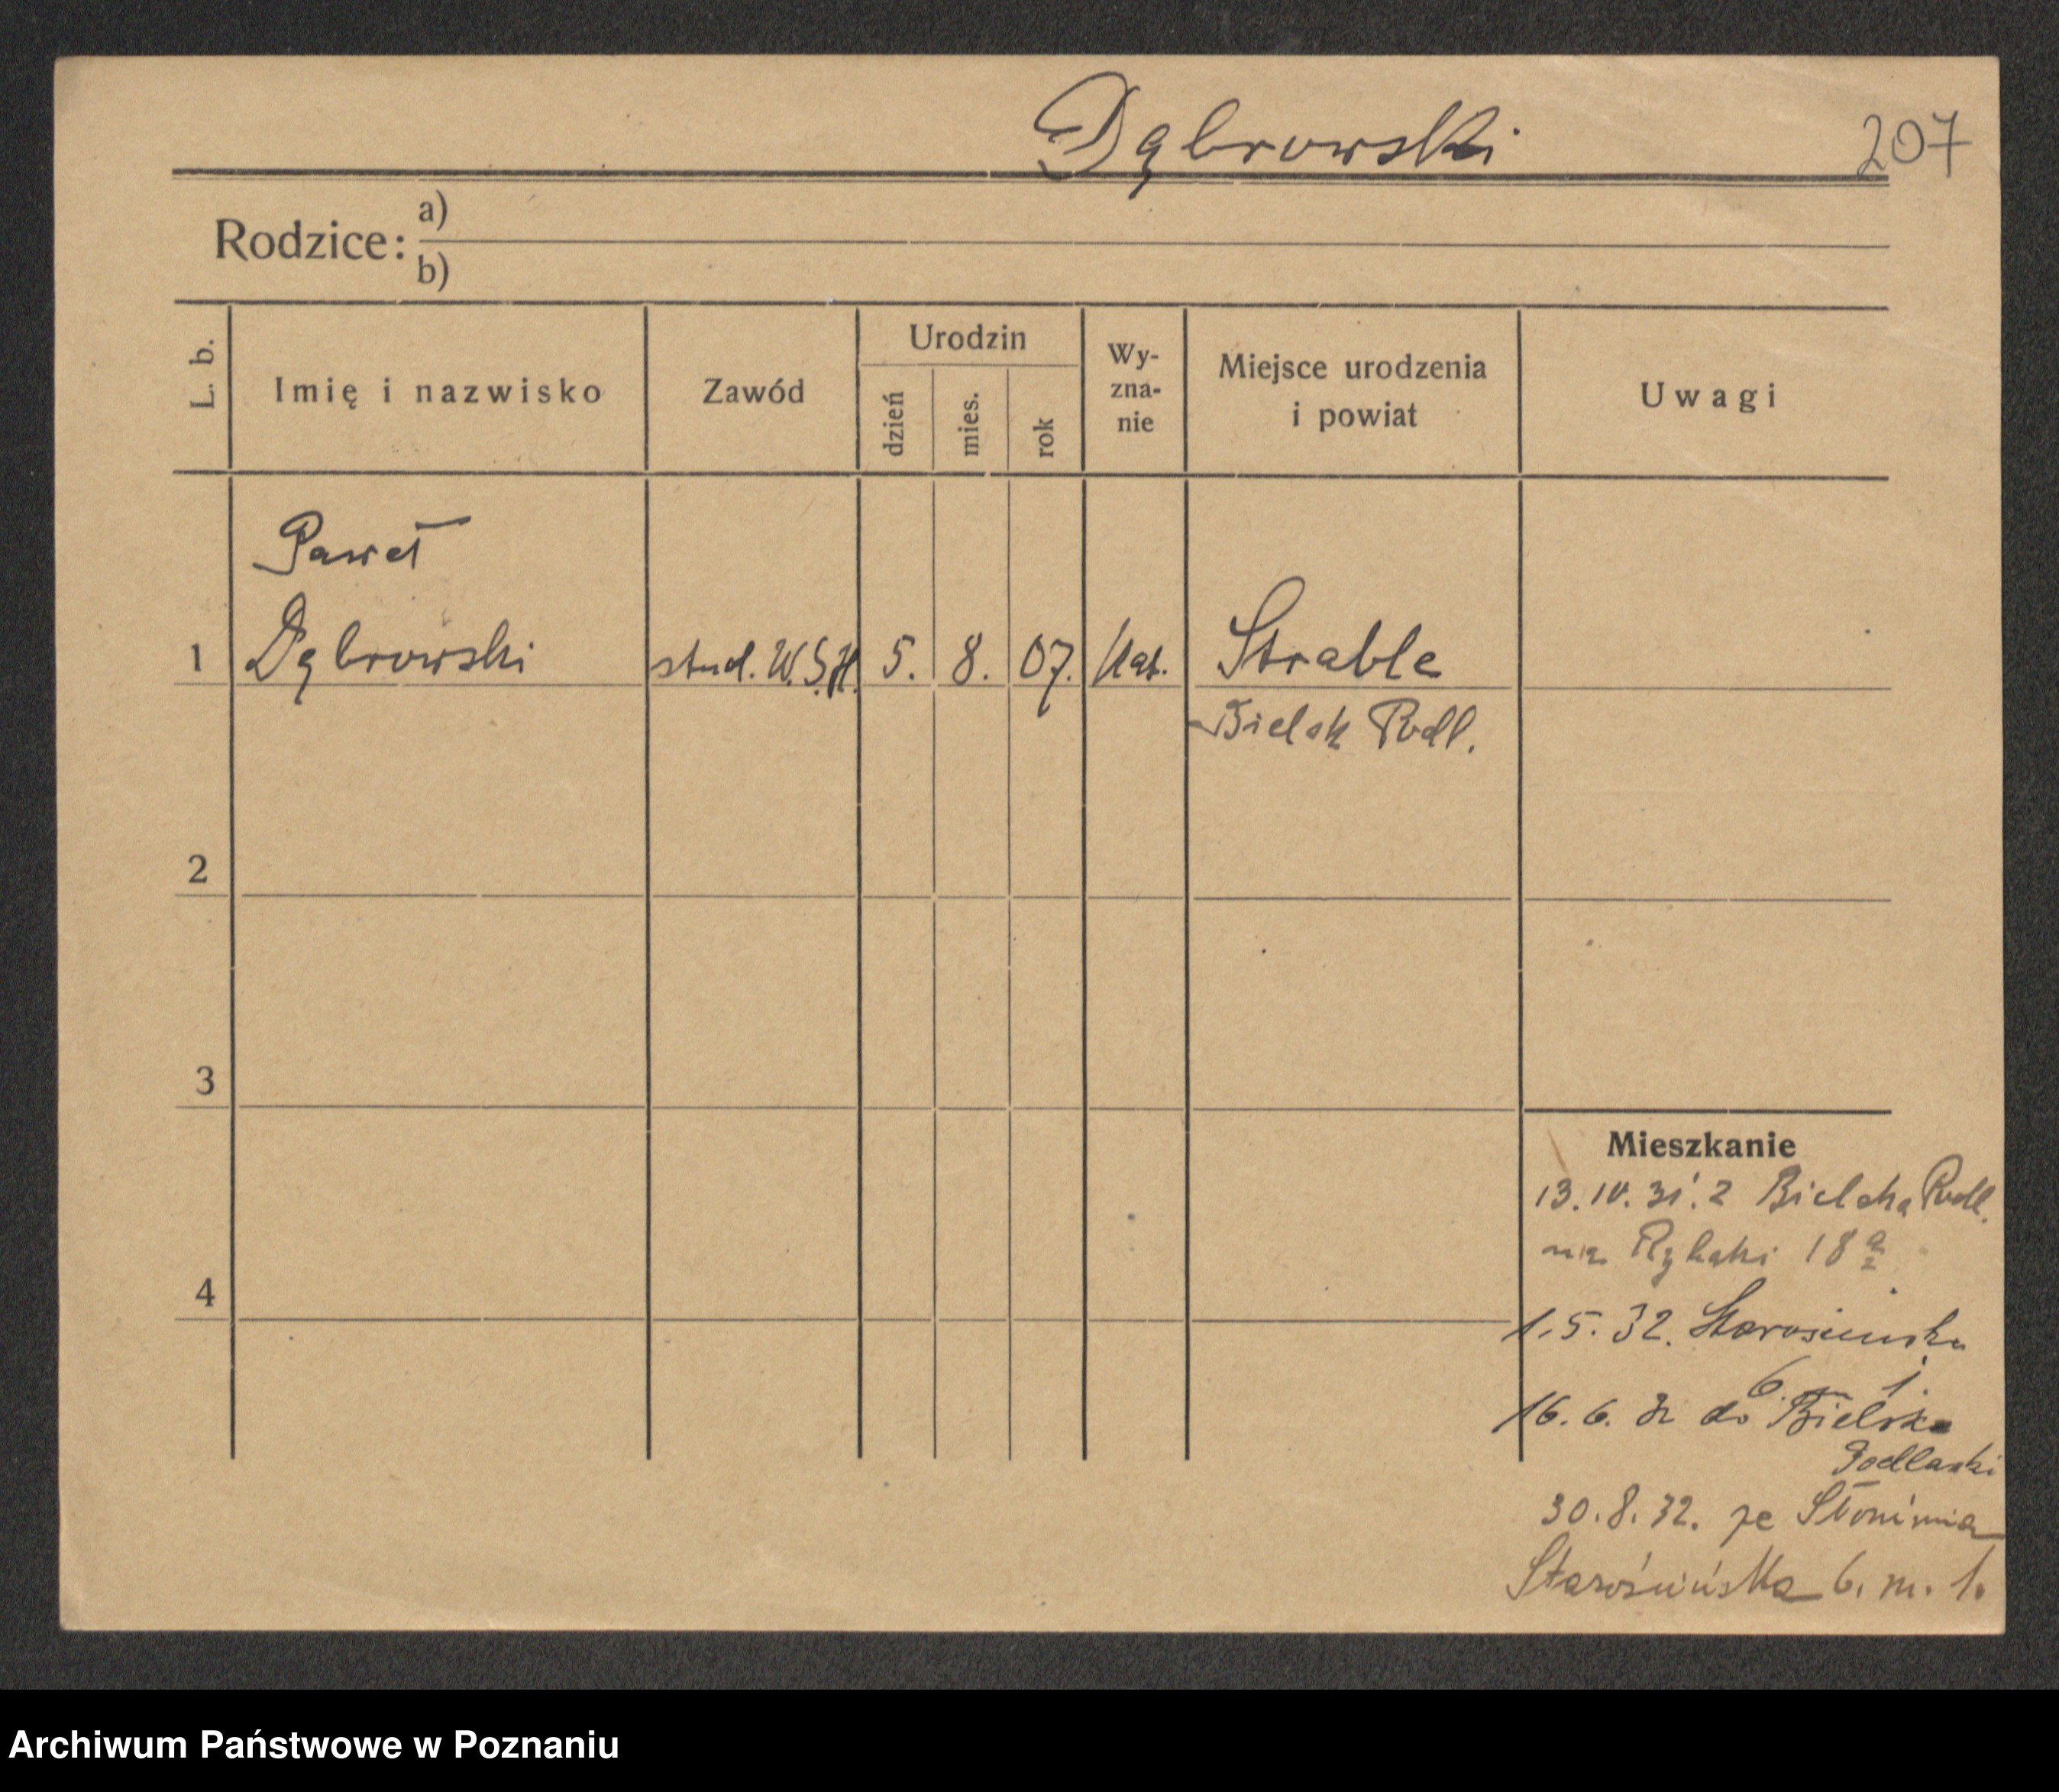 Dąbrowski
207
Rodzice: a)
b)
L. b.
Imię i nazwisko
Zawód
Urodzin
dzień
mies.
rok
Wy-
zna-
nie
Miejsce urodzenia
i powiat
Uwagi
Paweł
1 Dąbrowski stud. W.S.H. 5. 8. 07. kat. Strable
Bielsk Podl.
2
3
4
Mieszkanie
13. IV. 31. z Bielska Podl.
na Rybaki 18 a
1.5.32.
6. 1.
16.6.32 do Bielska
Podlaski
30.8.32. ze Słonimia
6. m. 1.
Archiwum Państwowe w Poznaniu